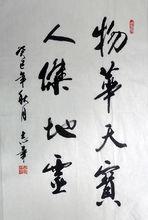 物華天寶
人傑地靈
癸巳年秋月